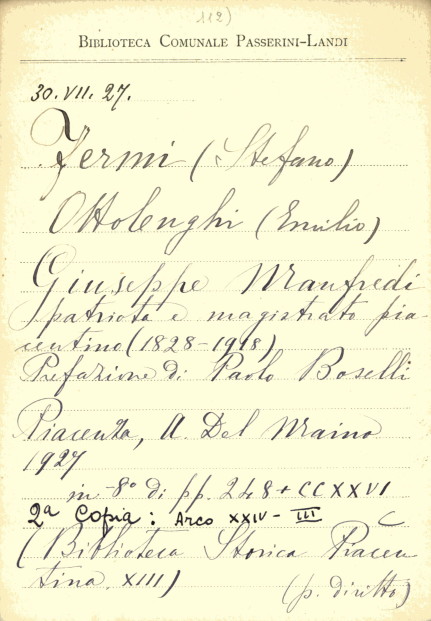 112)
BIBLIOTECA COMUNALE PASSERINI-LANDI
30.VII.27.
Fermi (Stefano)
Ottolenghi (Emilio)
Giuseppe Manfredi
patriota e magistrato pia-
centino (1828-1918)
Prefazione di Paolo Boselli
Piacenza, A. Del Maino
1927
in-8° di pp. 248+CCXXVI
2ª Copia: Arco XXIV - III
C
(Biblioteca Storica Piacen
tina XIII)
(p. diritto)